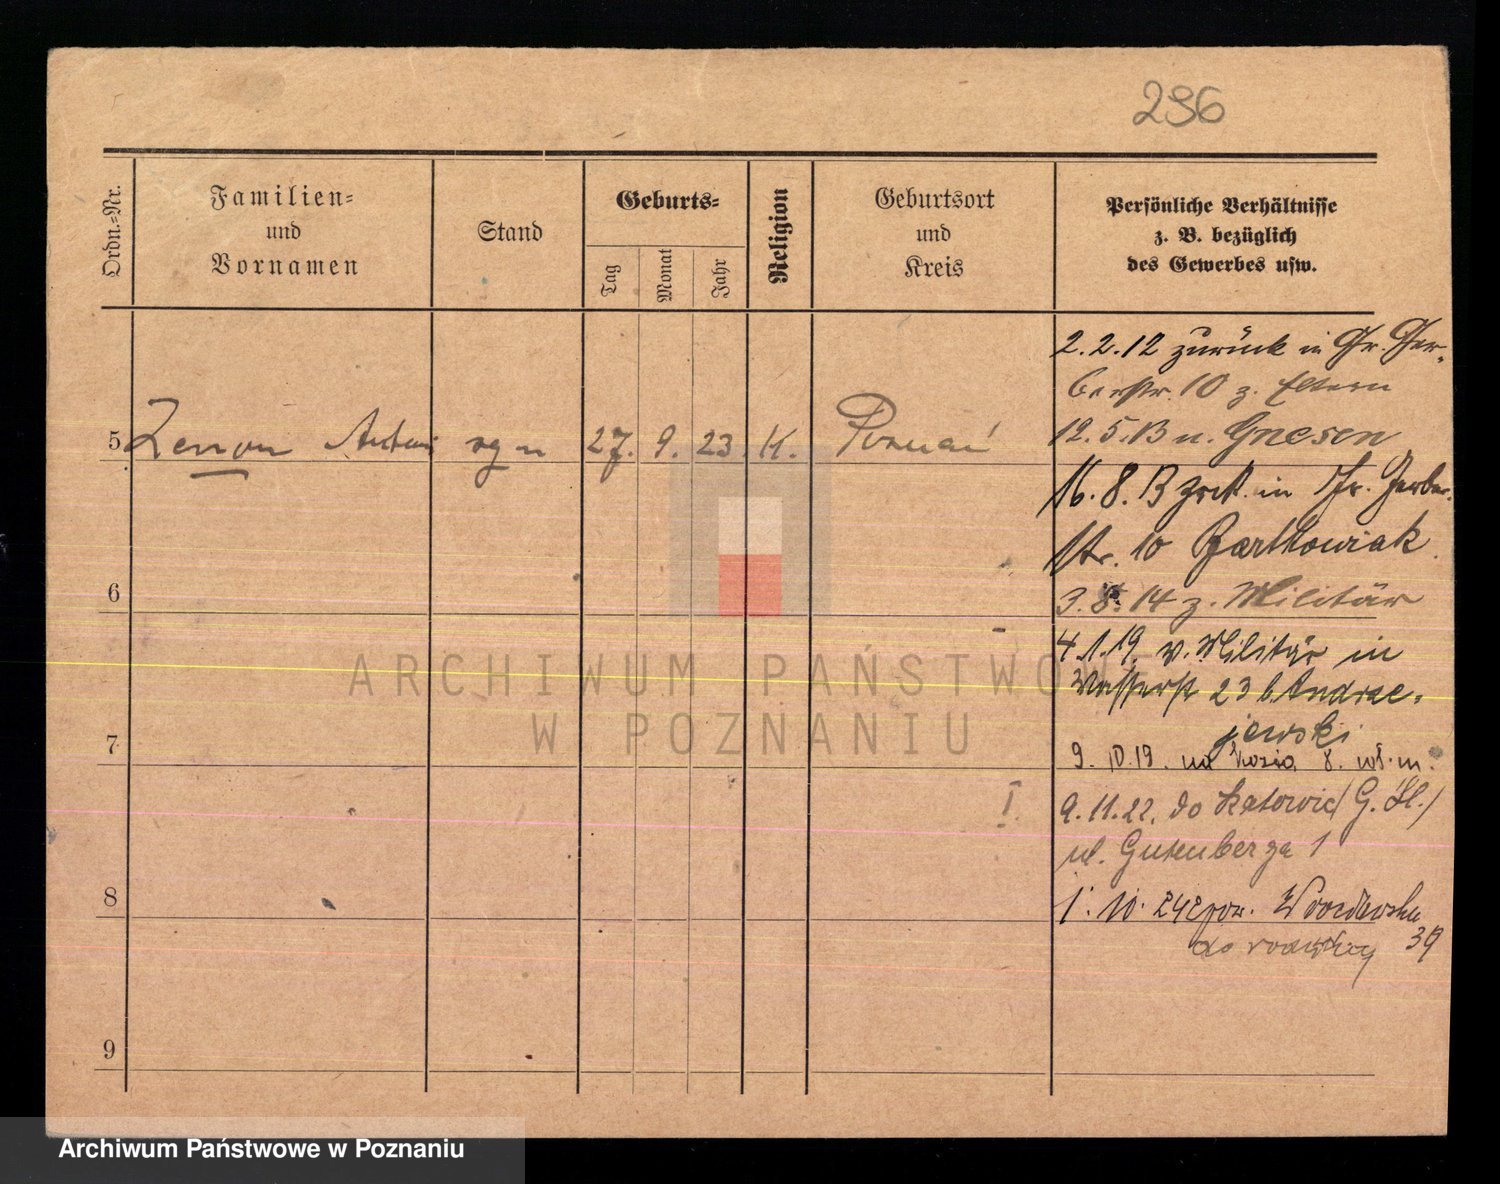 296
Ordn.=Nr.
Familien=
und
Vornamen
Stand
Geburts=
Tag
Monat
Jahr
Religion
Geburtsort
und
Kreis
Persönliche Verhältnisse
z. B. bezüglich
des Gewerbes usw.
2.2.12 zurück in Gr. Ger-
berstr. 10 z. Eltern
12.5.13 n. Gnesen
5 Zenon Antoni 27. 9. 23 K. Poznań
16.8.13 zrck. in Gr. Gerber
str. 10 Bartkowiak
6
3.8.14 z. Militär
4.1.19. v. Militär in
Wasserstr 23 b. Andrze-
jewski
7
9. 10.19. na Kozia 8. wł. m.
I. 9.11.22. do Katowic (G. Śl.)
ul. Gutenberga 1
8
1. 10. 24 z pow. 39
do
9
ARCHIWUM PAŃSTWOW
W POZNANIU
Archiwum Państwowe w Poznaniu